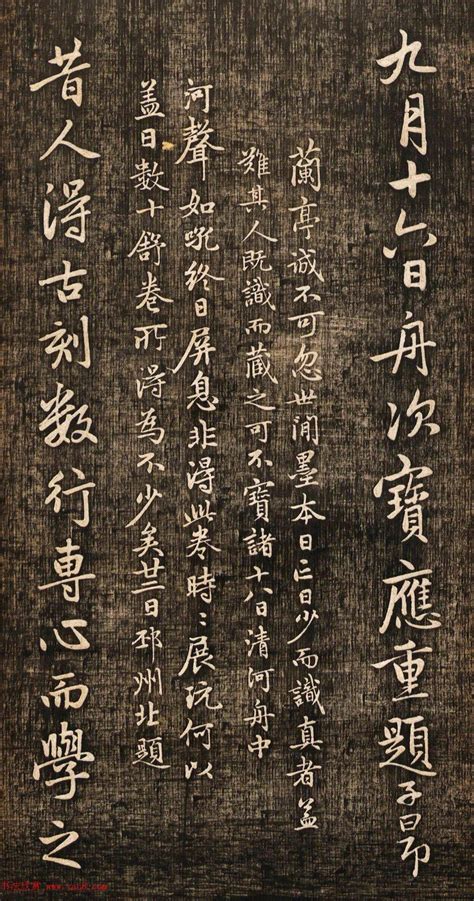 九月十六日舟次寶應重題子昂
蘭亭誠不可忽世間墨本日亡日少而識真者蓋
難其人既識而藏之可不寶諸十八日清河舟中
河聲如吼終日屏息非得此卷時〻展玩何以
盖日数十舒卷所得為不少矣廿二日邳州北題
昔人得古刻数行専心而學之